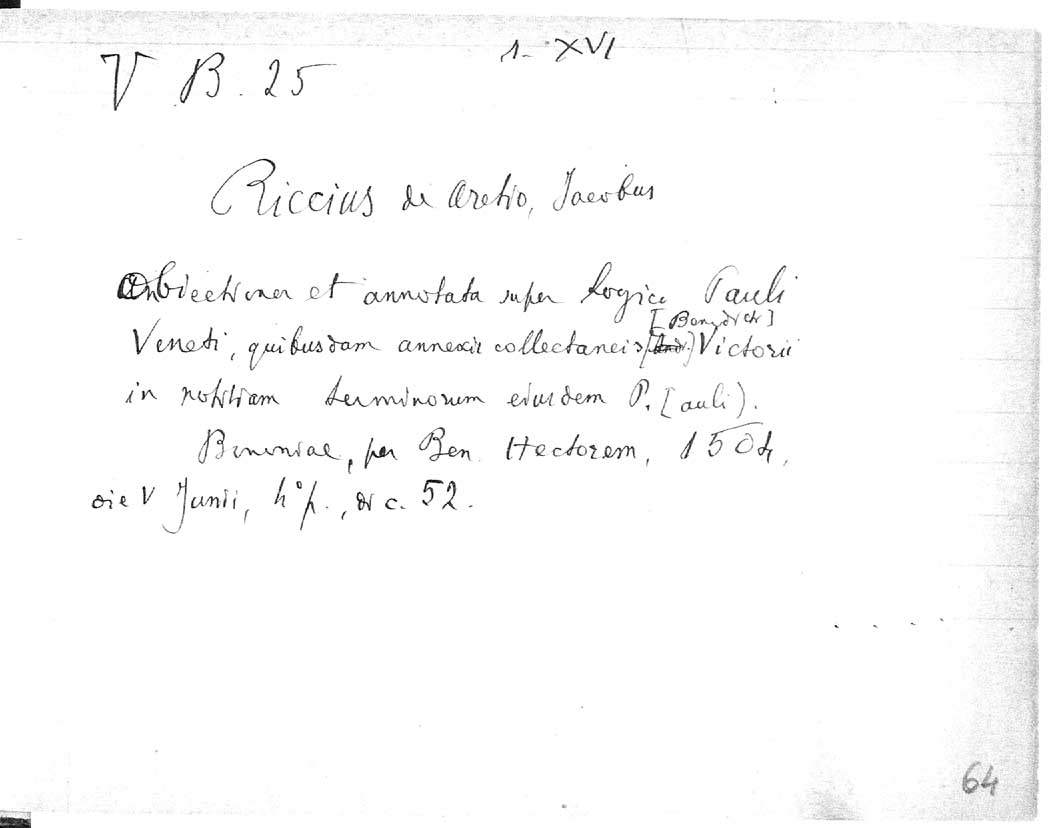 V B. 25
s. XVI
Riccius de Aretio, Jacobus
Obiectiones et annotata super logica Pauli
[Benedicti]
Veneti, quibusdam annexis collectaneis Victorii
in notitiam terminorum eiusdem P. [auli).
Bononiae, per Ben. Hectorem, 1504,
die V Junii, 4° p., di c. 52.
64